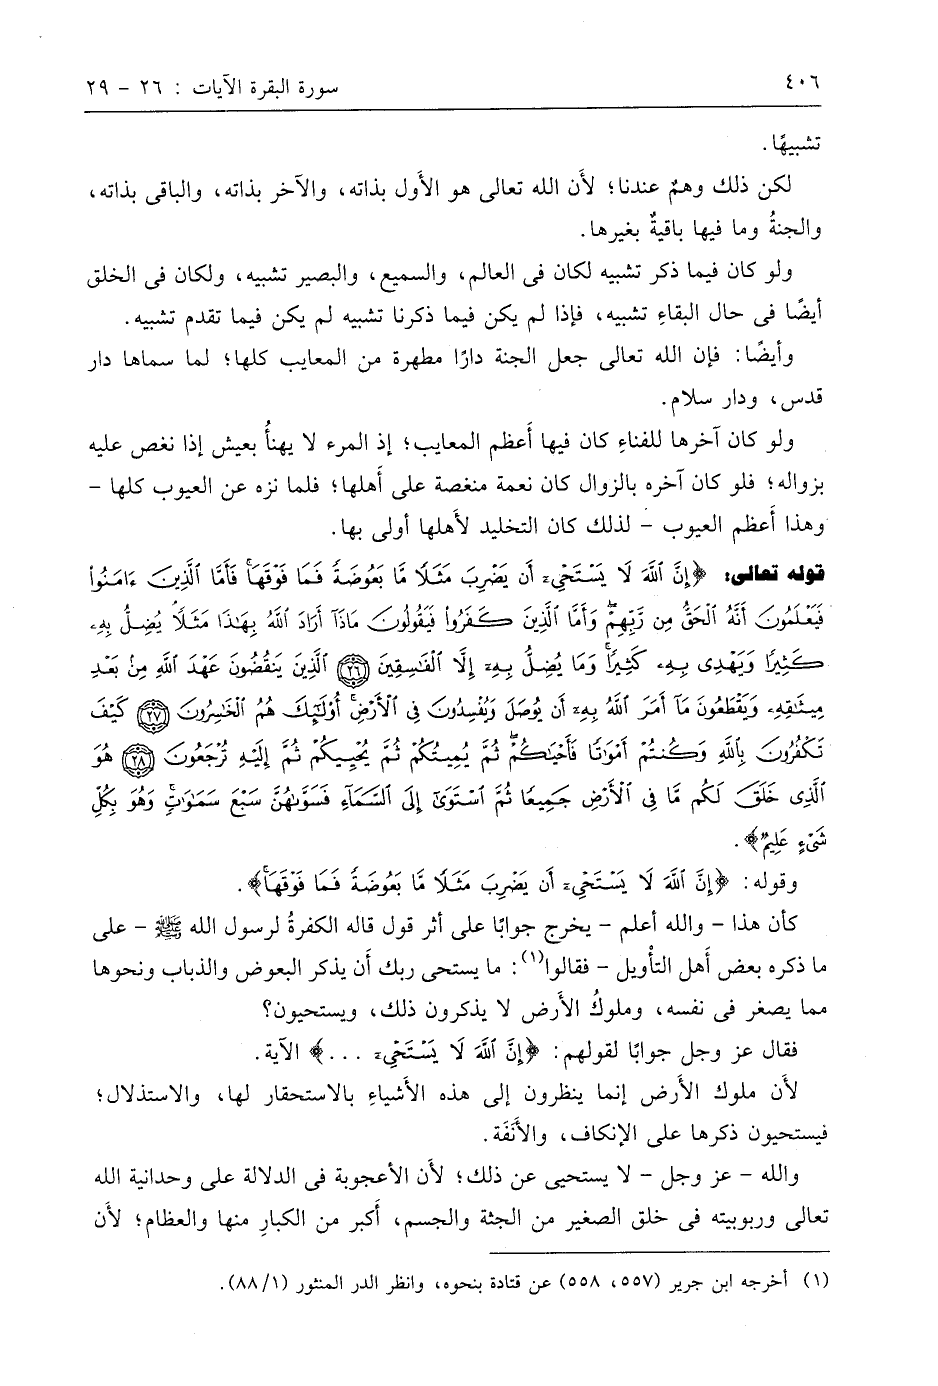 ٤٠٦
سورة البقرة الآيات : ٢٦ - ٢٩
تشبيهًا.
لكن ذلك وهمٌ عندنا؛ لأن الله تعالى هو الأول بذاته، والآخر بذاته، والباقى بذاته،
والجنةُ وما فيها باقيةٌ بغيرها.
ولو كان فيما ذكر تشبيه لكان فى العالم، والسميع، والبصير تشبيه، ولكان فى الخلق
أيضًا فى حال البقاءِ تشبيه، فإذا لم يكن فيما ذكرنا تشبيه لم يكن فيما تقدم تشبيه.
وأيضًا: فإن الله تعالى جعل الجنة دارًا مطهرة من المعايب كلها؛ لما سماها دار
قدس، ودار سلام.
ولو كان آخرها للفناءِ كان فيها أعظم المعايب؛ إذ المرء لا يهنأُ بعيش إذا نغص عليه
بزواله؛ فلو كان آخره بالزوال كان نعمة منغصة على أَهلها؛ فلما نزه عن العيوب كلها -
وهذا أَعظم العيوب - لذلك كان التخليد لأهلها أولى بها.
قوله تعالى: ﴿إِنَّ ٱللَّهَ لَا يَسْتَحْىِۦٓ أَن يَضْرِبَ مَثَلًا مَّا بَعُوضَةً فَمَا فَوْقَهَاۚ فَأَمَّا ٱلَّذِينَ ءَامَنُوا۟
فَيَعْلَمُونَ أَنَّهُ ٱلْحَقُّ مِن رَّبِّهِمْۖ وَأَمَّا ٱلَّذِينَ كَفَرُوا۟ فَيَقُولُونَ مَاذَآ أَرَادَ ٱللَّهُ بِهَـٰذَا مَثَلًاۘ يُضِلُّ بِهِۦ
كَثِيرًا وَيَهْدِى بِهِۦ كَثِيرًاۚ وَمَا يُضِلُّ بِهِۦٓ إِلَّا ٱلْفَـٰسِقِينَ ﴿٢٦﴾ ٱلَّذِينَ يَنقُضُونَ عَهْدَ ٱللَّهِ مِنۢ بَعْدِ
مِيثَـٰقِهِۦ وَيَقْطَعُونَ مَآ أَمَرَ ٱللَّهُ بِهِۦٓ أَن يُوصَلَ وَيُفْسِدُونَ فِى ٱلْأَرْضِۚ أُو۟لَـٰٓئِكَ هُمُ ٱلْخَـٰسِرُونَ ﴿٢٧﴾ كَيْفَ
تَكْفُرُونَ بِٱللَّهِ وَكُنتُمْ أَمْوَٰتًا فَأَحْيَـٰكُمْۖ ثُمَّ يُمِيتُكُمْ ثُمَّ يُحْيِيكُمْ ثُمَّ إِلَيْهِ تُرْجَعُونَ ﴿٢٨﴾ هُوَ
ٱلَّذِى خَلَقَ لَكُم مَّا فِى ٱلْأَرْضِ جَمِيعًا ثُمَّ ٱسْتَوَىٰٓ إِلَى ٱلسَّمَآءِ فَسَوَّىٰهُنَّ سَبْعَ سَمَـٰوَٰتٍۚ وَهُوَ بِكُلِّ
شَىْءٍ عَلِيمٌ﴾.
وقوله: ﴿إِنَّ ٱللَّهَ لَا يَسْتَحْىِۦٓ أَن يَضْرِبَ مَثَلًا مَّا بَعُوضَةً فَمَا فَوْقَهَاۚ﴾.
كأن هذا - والله أعلم - يخرج جوابًا على أثر قول قاله الكفرةُ لرسول الله ﷺ - على
ما ذكره بعض أَهل التأْويل - فقالوا(١): ما يستحى ربك أن يذكر البعوض والذباب ونحوها
مما يصغر فى نفسه، وملوكُ الأَرض لا يذكرون ذلك، ويستحيون؟
فقال عز وجل جوابًا لقولهم: ﴿إِنَّ ٱللَّهَ لَا يَسْتَحْىِۦٓ ...﴾ الآية.
لأن ملوك الأَرض إنما ينظرون إلى هذه الأشياءِ بالاستحقار لها، والاستذلال؛
فيستحيون ذكرها على الإنكاف، والأَنَفَة.
والله - عز وجل - لا يستحيى عن ذلك؛ لأن الأعجوبة فى الدلالة على وحدانية الله
تعالى وربوبيته فى خلق الصغير من الجثة والجسم، أَكبر من الكبارِ منها والعظام؛ لأن
(١) أخرجه ابن جرير (٥٥٧، ٥٥٨) عن قتادة بنحوه، وانظر الدر المنثور (٨٨/١).